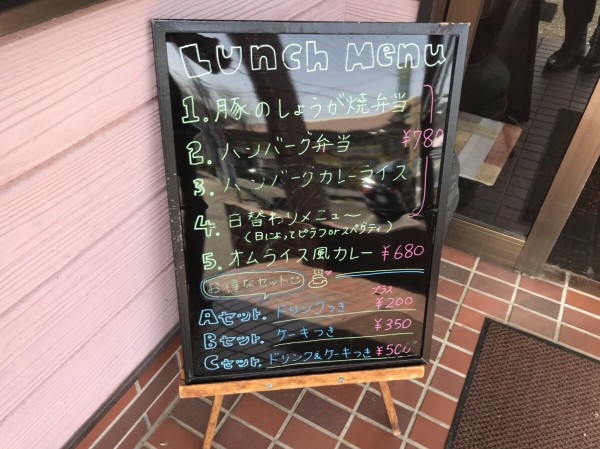 Lunch Menu
1. 豚のしょうが焼弁当
2. ハンバーグ弁当 ¥780
3. ハンバーグカレーライス
4. 日替わりメニュ〜
(日によってピラフorスパゲティ)
5. オムライス風カレー ¥680
お得なセット
プラス
Aセット. ドリンクつき ¥200
Bセット. ケーキつき ¥350
Cセット. ドリンク&ケーキつき ¥500